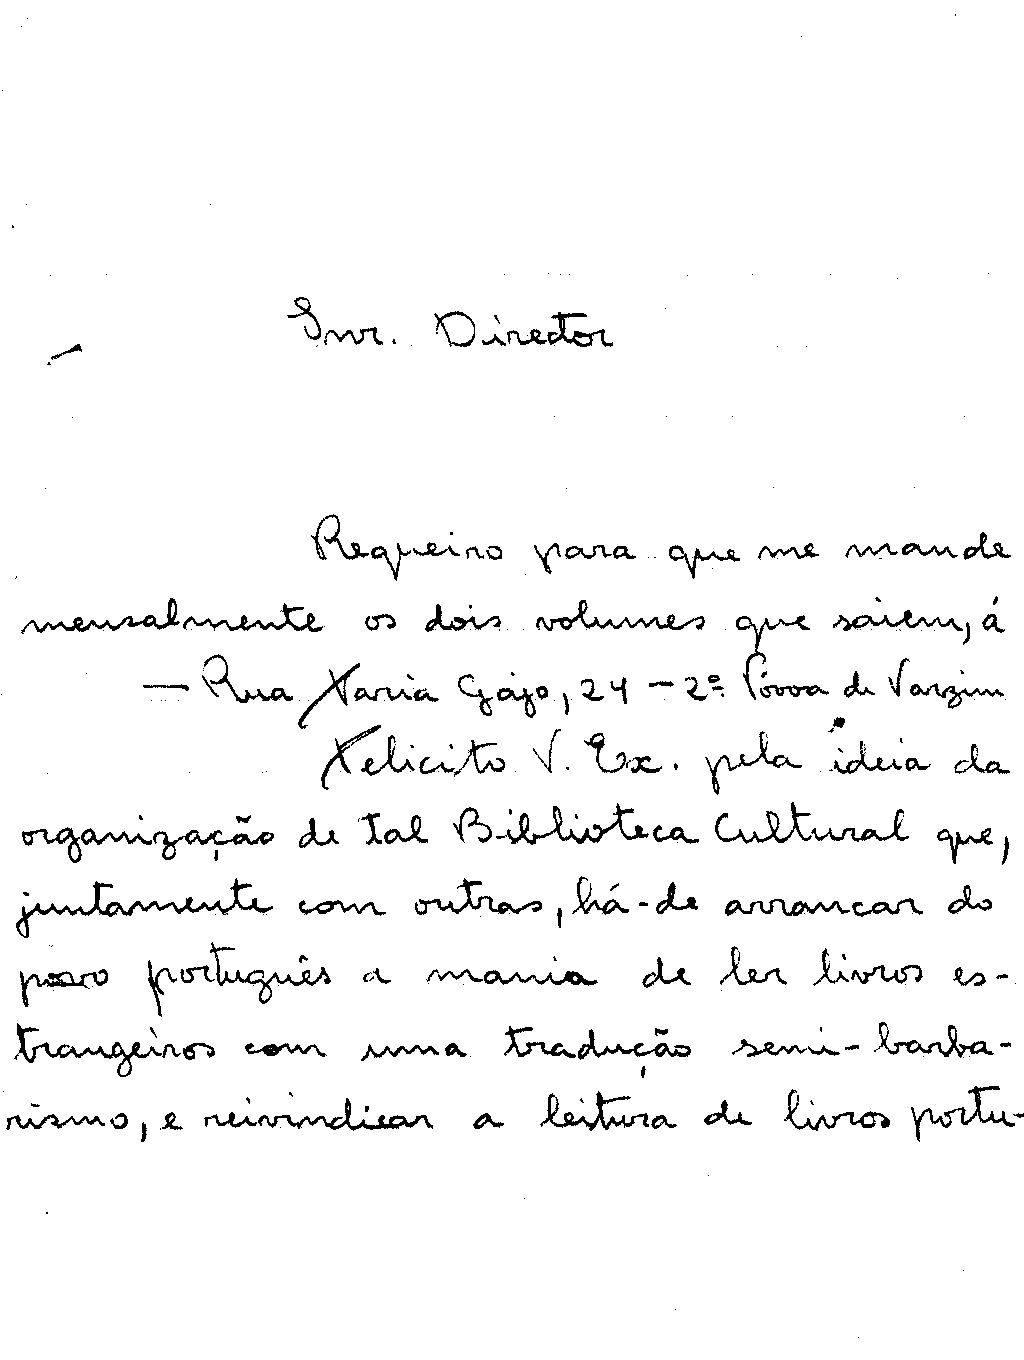 Snr. Director
Requeiro para que me mande
mensalmente os dois volumes que saiem, á
— Rua Faria Gajo, 24 - 2º Póvoa de Varzim
Felicito V. Ex. pela ideia da
organização de tal Biblioteca Cultural que,
juntamente com outras, há-de arrancar do
povo português a mania de ler livros es-
trangeiros com uma tradução semi-barba-
rismo, e reivindicar a leitura de livros portu-